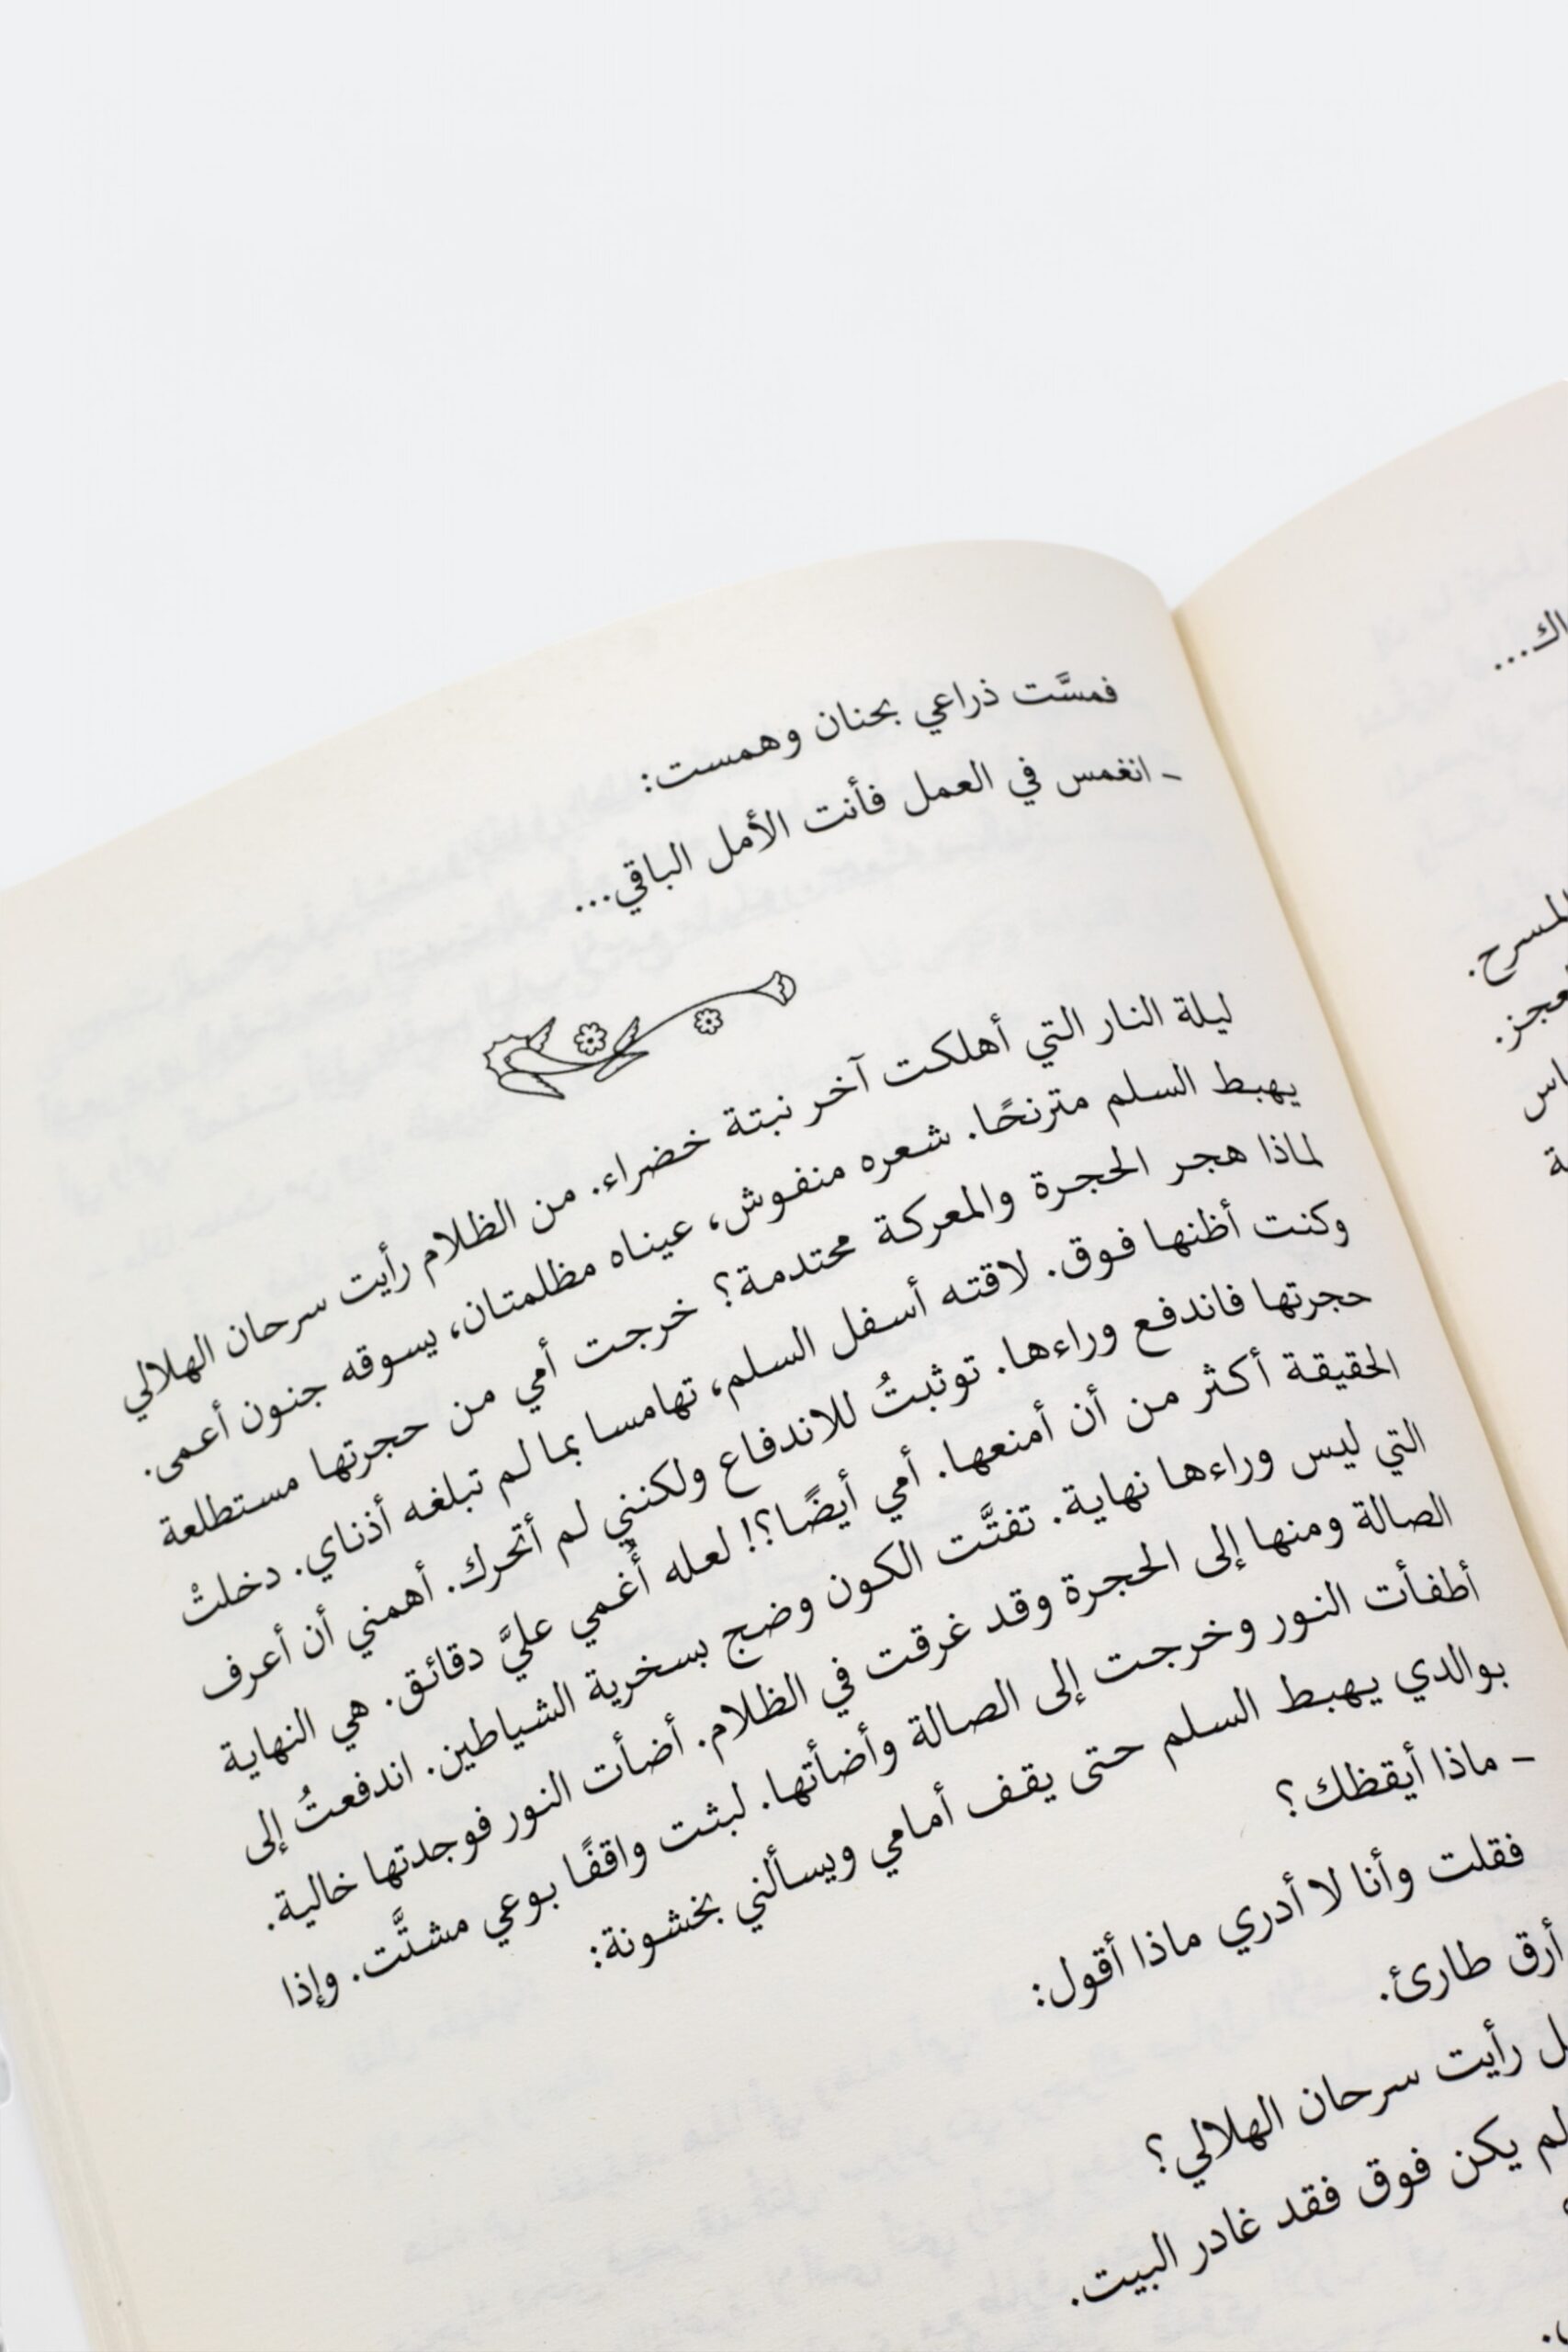 فمسَّت ذراعي بحنان وهمست:
ـ انغمس في العمل فأنت الأمل الباقي...
ليلة النار التي أهلكت آخر نبتة خضراء. من الظلام رأيت سرحان الهلالي
يهبط السلم مترنحًا. شعره منفوش، عيناه مظلمتان، يسوقه جنون أعمى.
لماذا هجر الحجرة والمعركة محتدمة؟ خرجت أمي من حجرتها مستطلعة
وكنت أظنها فوق. لاقته أسفل السلم، تهامسا بما لم تبلغه أذناي. دخلتْ
حجرتها فاندفع وراءها. توثبتُ للاندفاع ولكنني لم أتحرك. أهمني أن أعرف
الحقيقة أكثر من أن أمنعها. أمي أيضًا؟! لعله أُغمي عليَّ دقائق. هي النهاية
التي ليس وراءها نهاية. تفتَّت الكون وضج بسخرية الشياطين. اندفعتُ إلى
الصالة ومنها إلى الحجرة وقد غرقت في الظلام. أضأت النور فوجدتها خالية.
أطفأت النور وخرجت إلى الصالة وأضأتها. لبثت واقفًا بوعي مشتَّت. وإذا
بوالدي يهبط السلم حتى يقف أمامي ويسألني بخشونة:
ـ ماذا أيقظك؟
فقلت وأنا لا أدري ماذا أقول:
أرق طارئ.
رأيت سرحان الهلالي؟
لم يكن فوق فقد غادر البيت.
المسرح.